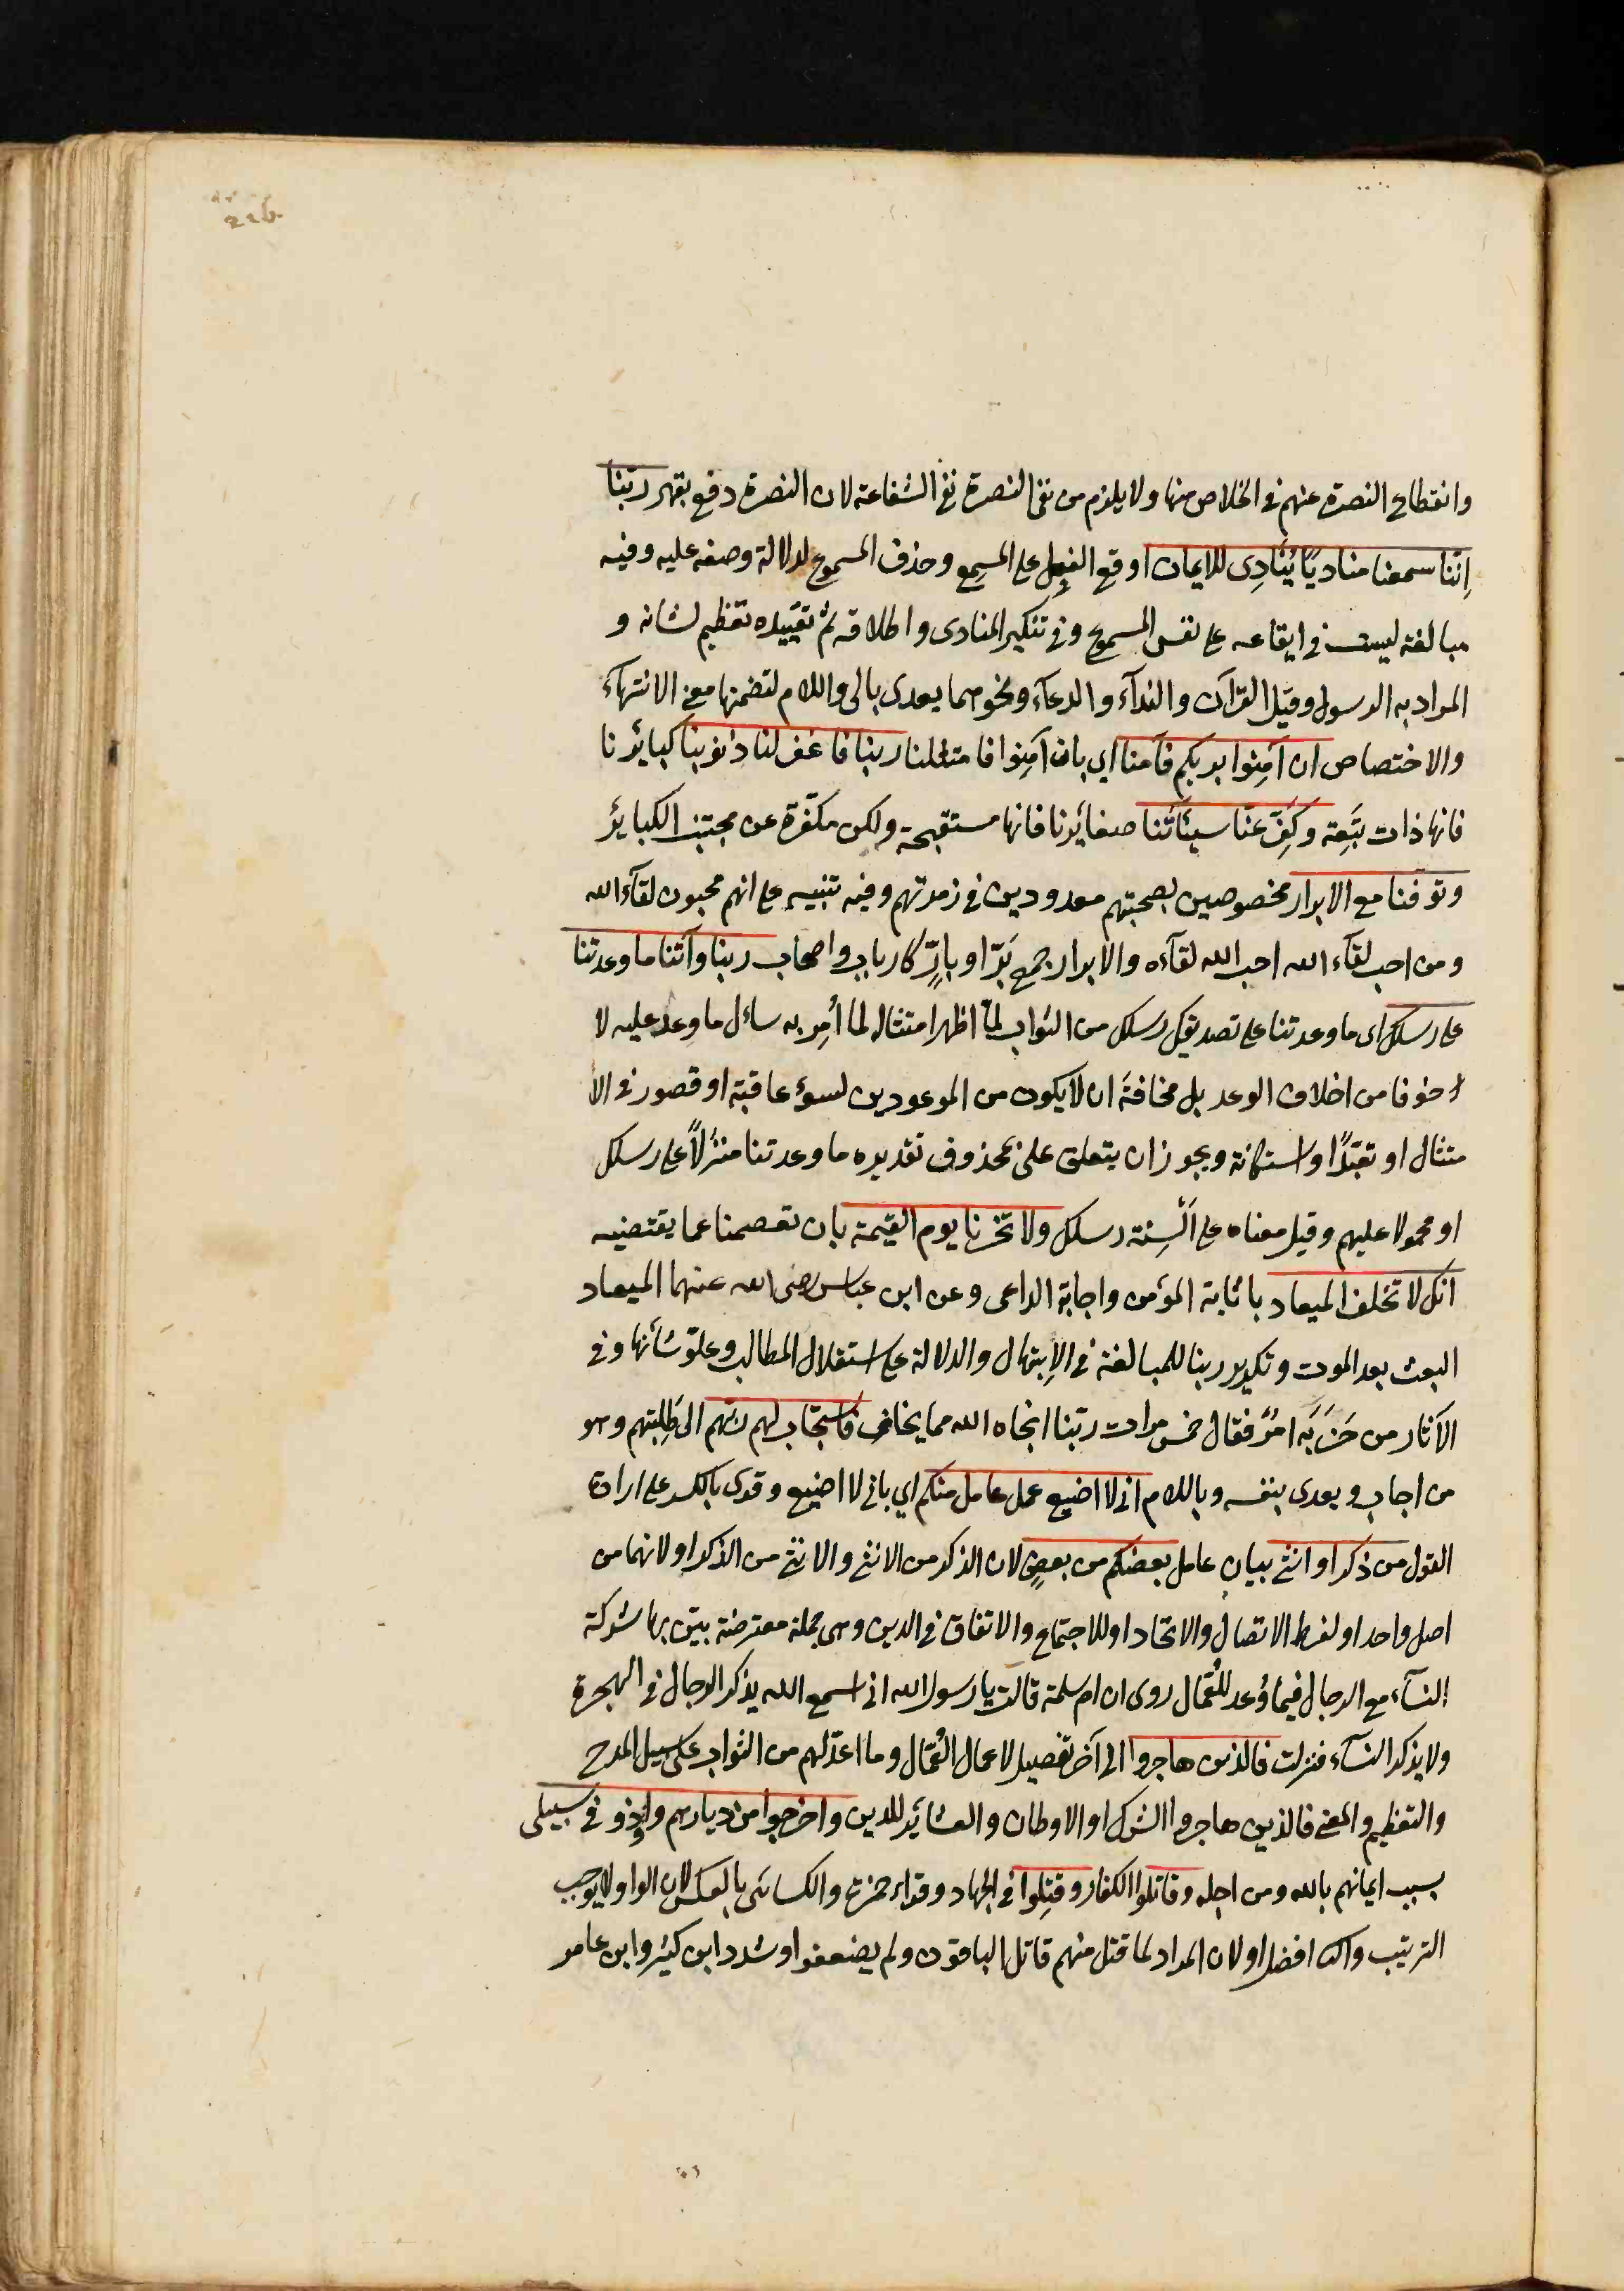 226
وانقطاع النصرة عنهم فى الخلاص منها ولا يلزم من نفى النصرة نفى الشفاعة لان النصرة دفع بقهر ربنا
اِننا سمعنا مناديًا يُنَادِى للايمان اوقع الفعل على المسمع وحذف المسموع لدلالة وصفه عليه وفيه
مبالغة ليست فى ايقاعه على نفس المسموع وفى تنكير المنادى واطلاقه ثم تقييده تعظيم لشانه و
المراد به الرسول وقيل القرآن والندآء والدعآء ونحوهما يعدى بالى واللام لتضمنها معنى الانتهآء
والاختصاص ان آمِنوا بربكم فآمنا اي بان آمِنوا فامتثلنا ربنا فاغفر لنا ذنوبنا كبائرنا
فانها ذات تَبِعة وكَفِّر عنّا سيئاتنا صغائرنا فانها مستقبحة ولكن مكفّرة عن مجتنب الكبائر
وتوفنا مع الابرار مخصوصين بصحبتهم معدودين فى زمرتهم وفيه تنبيه على انهم محبون لقآء الله
ومن احب لقآء الله احب الله لقآءه والابرار جمع بَرّ او بارٍّ كارباب واصحاب ربنا وآتنا ما وعدتنا
على رسلك اى ما وعدتنا على تصديق رسلك من الثواب لمّا اظهر امتثاله لما اُمِر به سأل ما وعد عليه لا
خوفا من اخلاف الوعد بل مخافةَ ان لا يكون من الموعودين لسوء عاقبة او قصور فى الا
متثال او تعبّدًا واستكانة ويجوز ان يتعلق على بمحذوف تقديره ما وعدتنا منزلًا على رسلك
او محمولا عليهم وقيل معناه على اَلْسِنة رسلك ولا تخزنا يوم القيمة بان تعصمنا عما يقتضيه
انك لا تخلف الميعاد باثابة المؤمن واجابة الداعى وعن ابن عباس رضى الله عنهما الميعاد
البعث بعد الموت وتكرير ربنا للمبالغة فى الاِبتهال والدلالة على استقلال المطالب وعلوّ شأنها وفى
الآثار من حَزَبَه امرٌ فقال خمس مرات ربّنا انجاه الله مما يخاف فاستجاب لهم ربهم الى طَلِبتهم وهو
من اجاب ويعدى بنفسه وباللام انى لا اضيع عمل عامل منكم اي بانى لا اضيع وقرى بالكسر على ارادة
القول من ذكر او انثى بيان عامل بعضكم من بعضٍ لان الذكر من الانثى والانثى من الذكر او لانهما من
اصل واحد او لفرط الاتصال والاتحاد او للاجتماع والاتفاق فى الدين وهى جملة معترضة بيّن بها شركة
النسآء مع الرجال فيما وُعد للعُمّال روى ان ام سلمة قالت يا رسول الله انى اسمع الله يذكر الرجال فى الهجرة
ولا يذكر النسآء فنزلت فالذين هاجروا الى آخر تفصيل لاعمال العُمّال وما اعدّ لهم من الثواب على سبيل المدح
والتعظيم والمعنى فالذين هاجروا الشرك او الاوطان والعشائر للدين واخرجوا من ديارهم واوذو فى سبيلى
بسبب ايمانهم بالله ومن اجله وقاتلوا الكفار وقُتِلوا فى الجهاد وقراء حمزة والكسائى بالعكس لان الواو لا يوجب
الترتيب والثانى افضل او لان المراد لما قتل منهم قاتل الباقون ولم يضعفوا وشدد ابن كثير وابن عامر